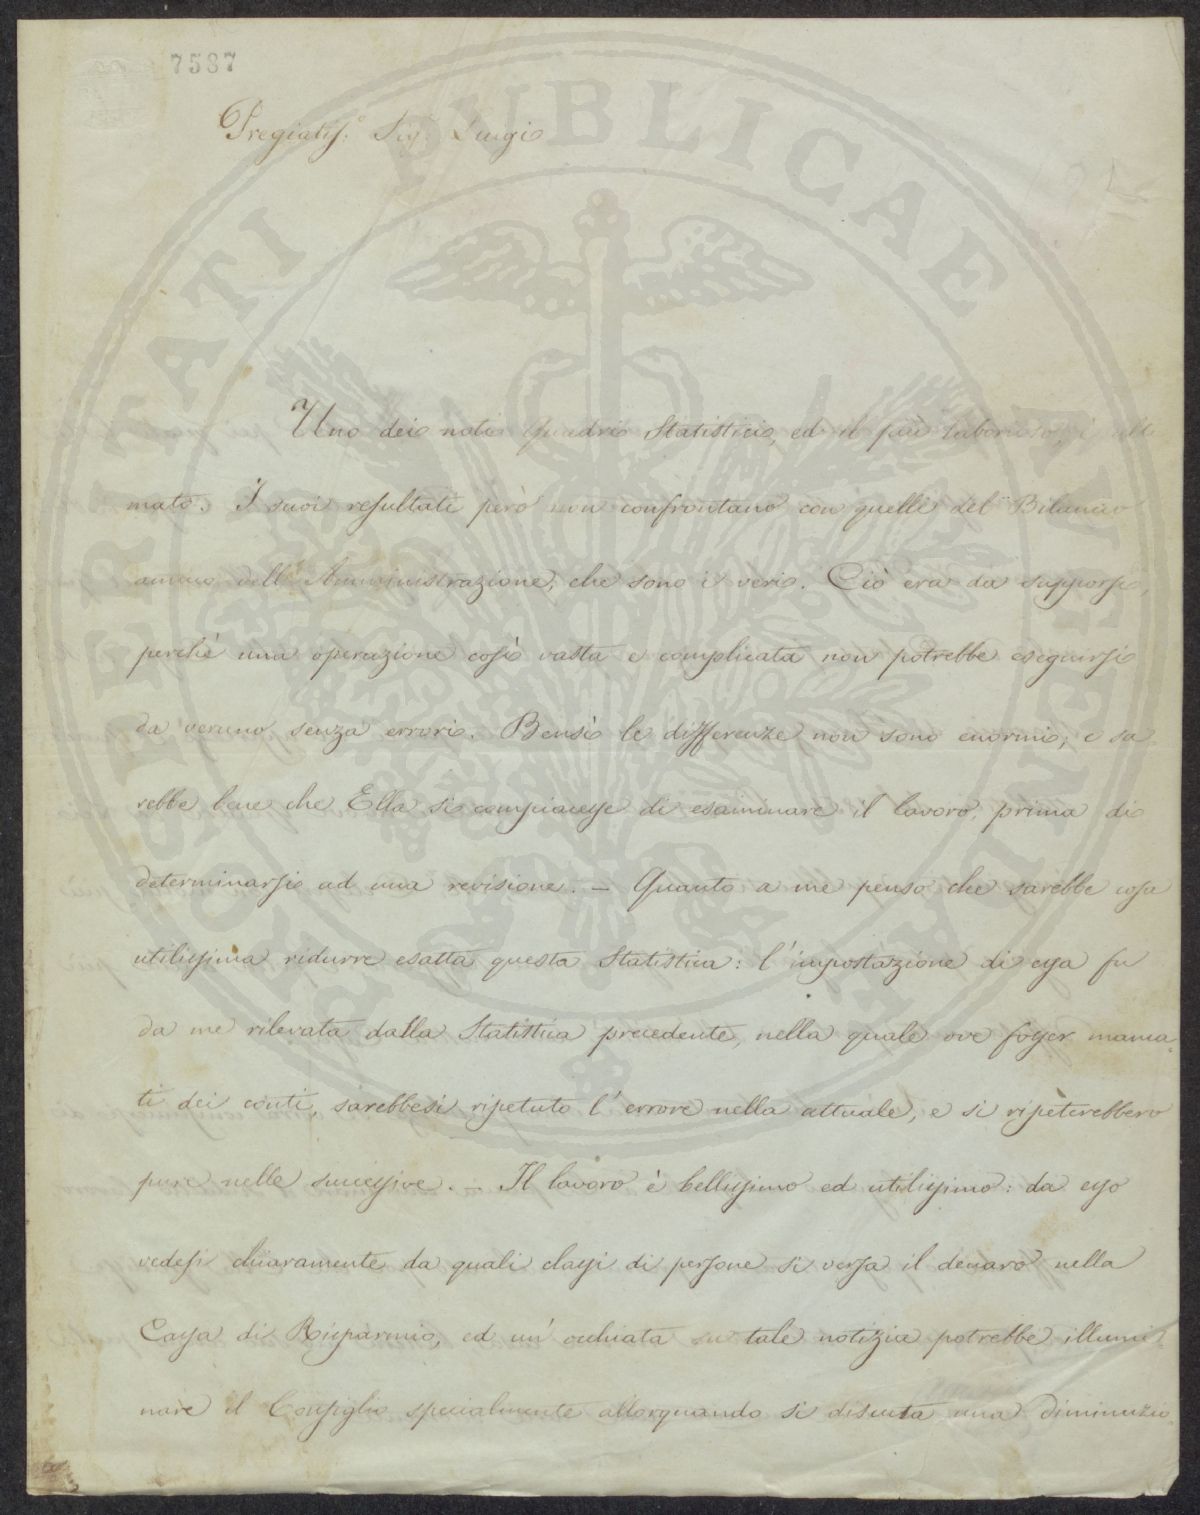 7587
Pregiatiss.º Sigʳ Luigi
Uno dei noti Quadri Statistici, ed il più laborioso, è ulti
mato. I suoi resultati però non confrontano con quelli del Bilancio
annuo dell'Amministrazione, che sono i veri. Ciò era da supporsi,
perchè una operazione così vasta e complicata non potrebbe eseguirsi
da veruno senza errori. Bensì le differenze non sono enormi; e sa
rebbe bene che Ella si compiacesse di esaminare il lavoro, prima di
determinarsi ad una revisione. — Quanto a me penso che sarebbe cosa
utilissima ridurre esatta questa Statistica: l'impostazione di essa fu
da me rilevata dalla Statistica precedente, nella quale ove fosser manca-
ti dei conti, sarebbesi ripetuto l'errore nella attuale, e si ripeterebbero
pure nelle successive. — Il lavoro è bellissimo ed utilissimo: da esso
vedesi chiaramente da quali classi di persone si versa il denaro nella
Cassa di Risparmio, ed un'occhiata su tale notizia potrebbe illumi-
nare il Consiglio specialmente allorquando si discuta una diminuzio
PUBLICAE